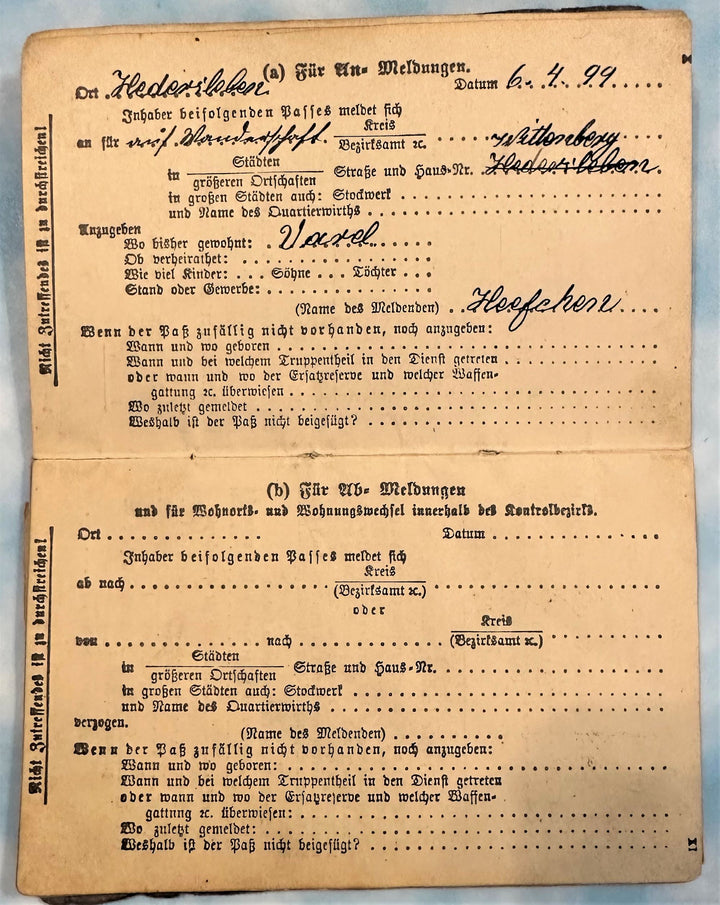 (a) Für An- Meldungen.
Ort Hedersleben Datum 6. 4. 99
Inhaber beifolgenden Passes meldet sich
an für auf Wanderschaft. Kreis Wittenberg
Bezirksamt ꝛc.
Städten
in größeren Ortschaften Straße und Haus-Nr. Hedersleben
in großen Städten auch: Stockwerk
und Name des Quartierwirths
Anzugeben
Wo bisher gewohnt: Varel
Ob verheirathet:
Wie viel Kinder: ... Söhne ... Töchter ...
Stand oder Gewerbe:
(Name des Meldenden) Heefchen
Wenn der Paß zufällig nicht vorhanden, noch anzugeben:
Wann und wo geboren
Wann und bei welchem Truppentheil in den Dienst getreten
oder wann und wo der Ersatzreserve und welcher Waffen-
gattung ꝛc. überwiesen
Wo zuletzt gemeldet
Weshalb ist der Paß nicht beigefügt?
Nicht Zutreffendes ist zu durchstreichen!
(b) Für Ab- Meldungen
und für Wohnorts- und Wohnungswechsel innerhalb des Kontrolbezirks.
Ort Datum
Inhaber beifolgenden Passes meldet sich
ab nach Kreis
(Bezirksamt ꝛc.)
oder
von nach Kreis
(Bezirksamt ꝛc.)
Städten
in größeren Ortschaften Straße und Haus-Nr.
in großen Städten auch: Stockwerk
und Name des Quartierwirths
verzogen.
(Name des Meldenden)
Wenn der Paß zufällig nicht vorhanden, noch anzugeben:
Wann und wo geboren:
Wann und bei welchem Truppentheil in den Dienst getreten
oder wann und wo der Ersatzreserve und welcher Waffen-
gattung ꝛc. überwiesen:
Wo zuletzt gemeldet:
Weshalb ist der Paß nicht beigefügt?
Nicht Zutreffendes ist zu durchstreichen!